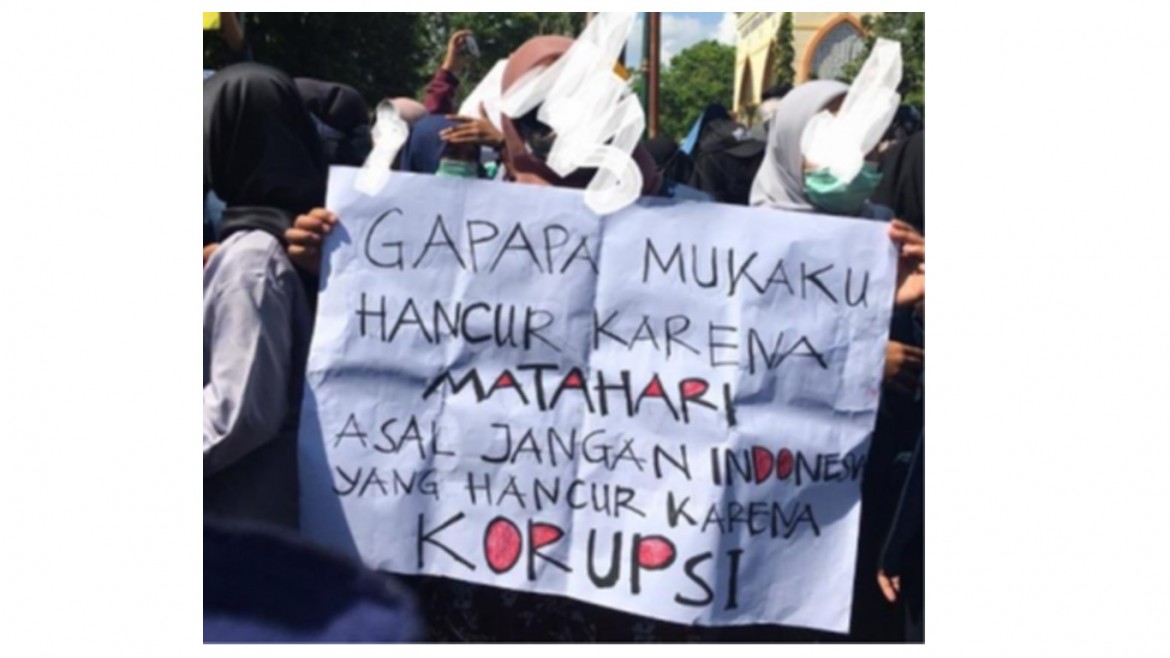 GAPAPA MUKAKU
HANCUR KARENA
MATAHARI
ASAL JANGAN INDONESIA
YANG HANCUR KARENA
KORUPSI